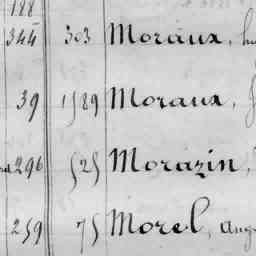 188
344 303 Moraux,
39 1589 Moraux,
296 525 Morazin,
259 75 Morel, Aug